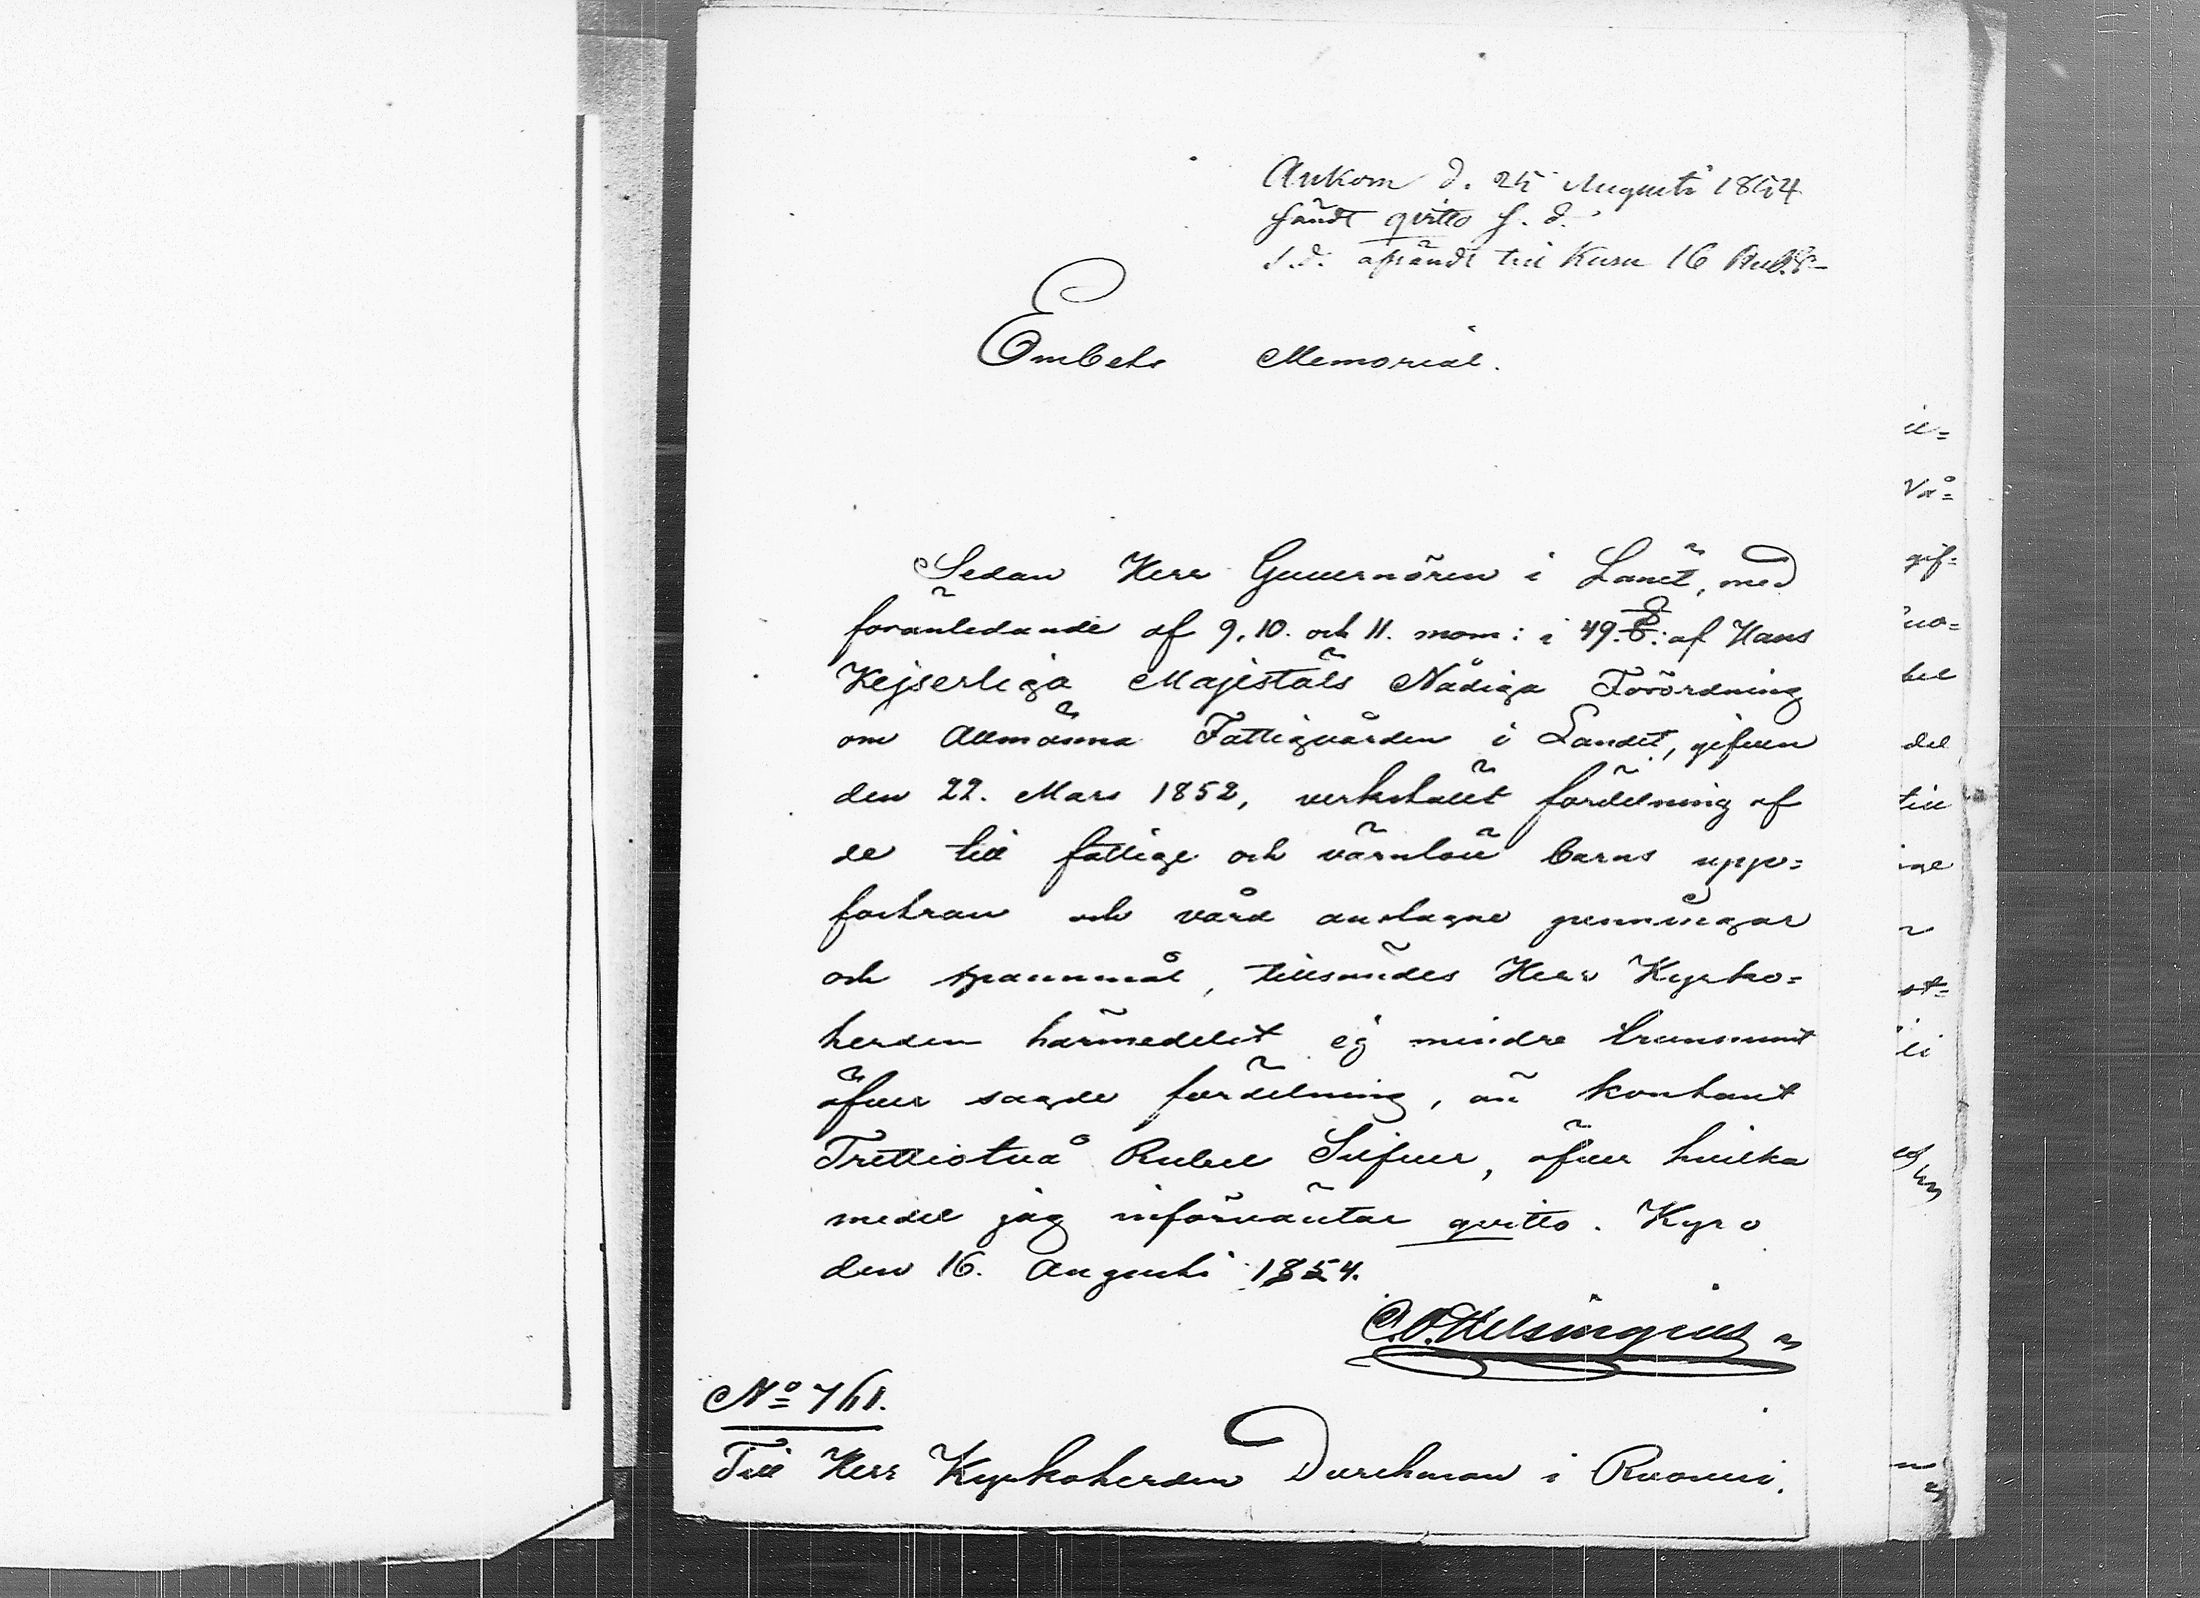 Ankom d. 25 Augusti 1854
sändt qvitto s. d.
s.d. afsändt till Kuru 16 Rub. S.
Embets Memorial.
Sedan Herr Guvernören i Länet, med
föranledande af 9, 10. och 11. mom: i 49. §: af Hans
Kejserliga Majestäts Nådiga Förordning
om Allmänna Fattigvården i Landet, gifven
den 22. Mars 1852, verkstält fördelning af
de till fattige och värnlöse barns upp=
fostran och vård anslagne penningar
och spannmål, tillsändes Herr Kyrko=
herden härmedelst ej mindre transumt
öfver sagde fördelning, än kontant
Trettiotvå Rubel Silfver, öfver hvilka
medel jag införväntar qvitto. Kyro
den 16. Augusti 1854.
C. O. Helsingius
No 761.
Till Herr Kyrkoherden Durchman i Ruovesi.
Vå=
gif=
uo=
del
till
st=